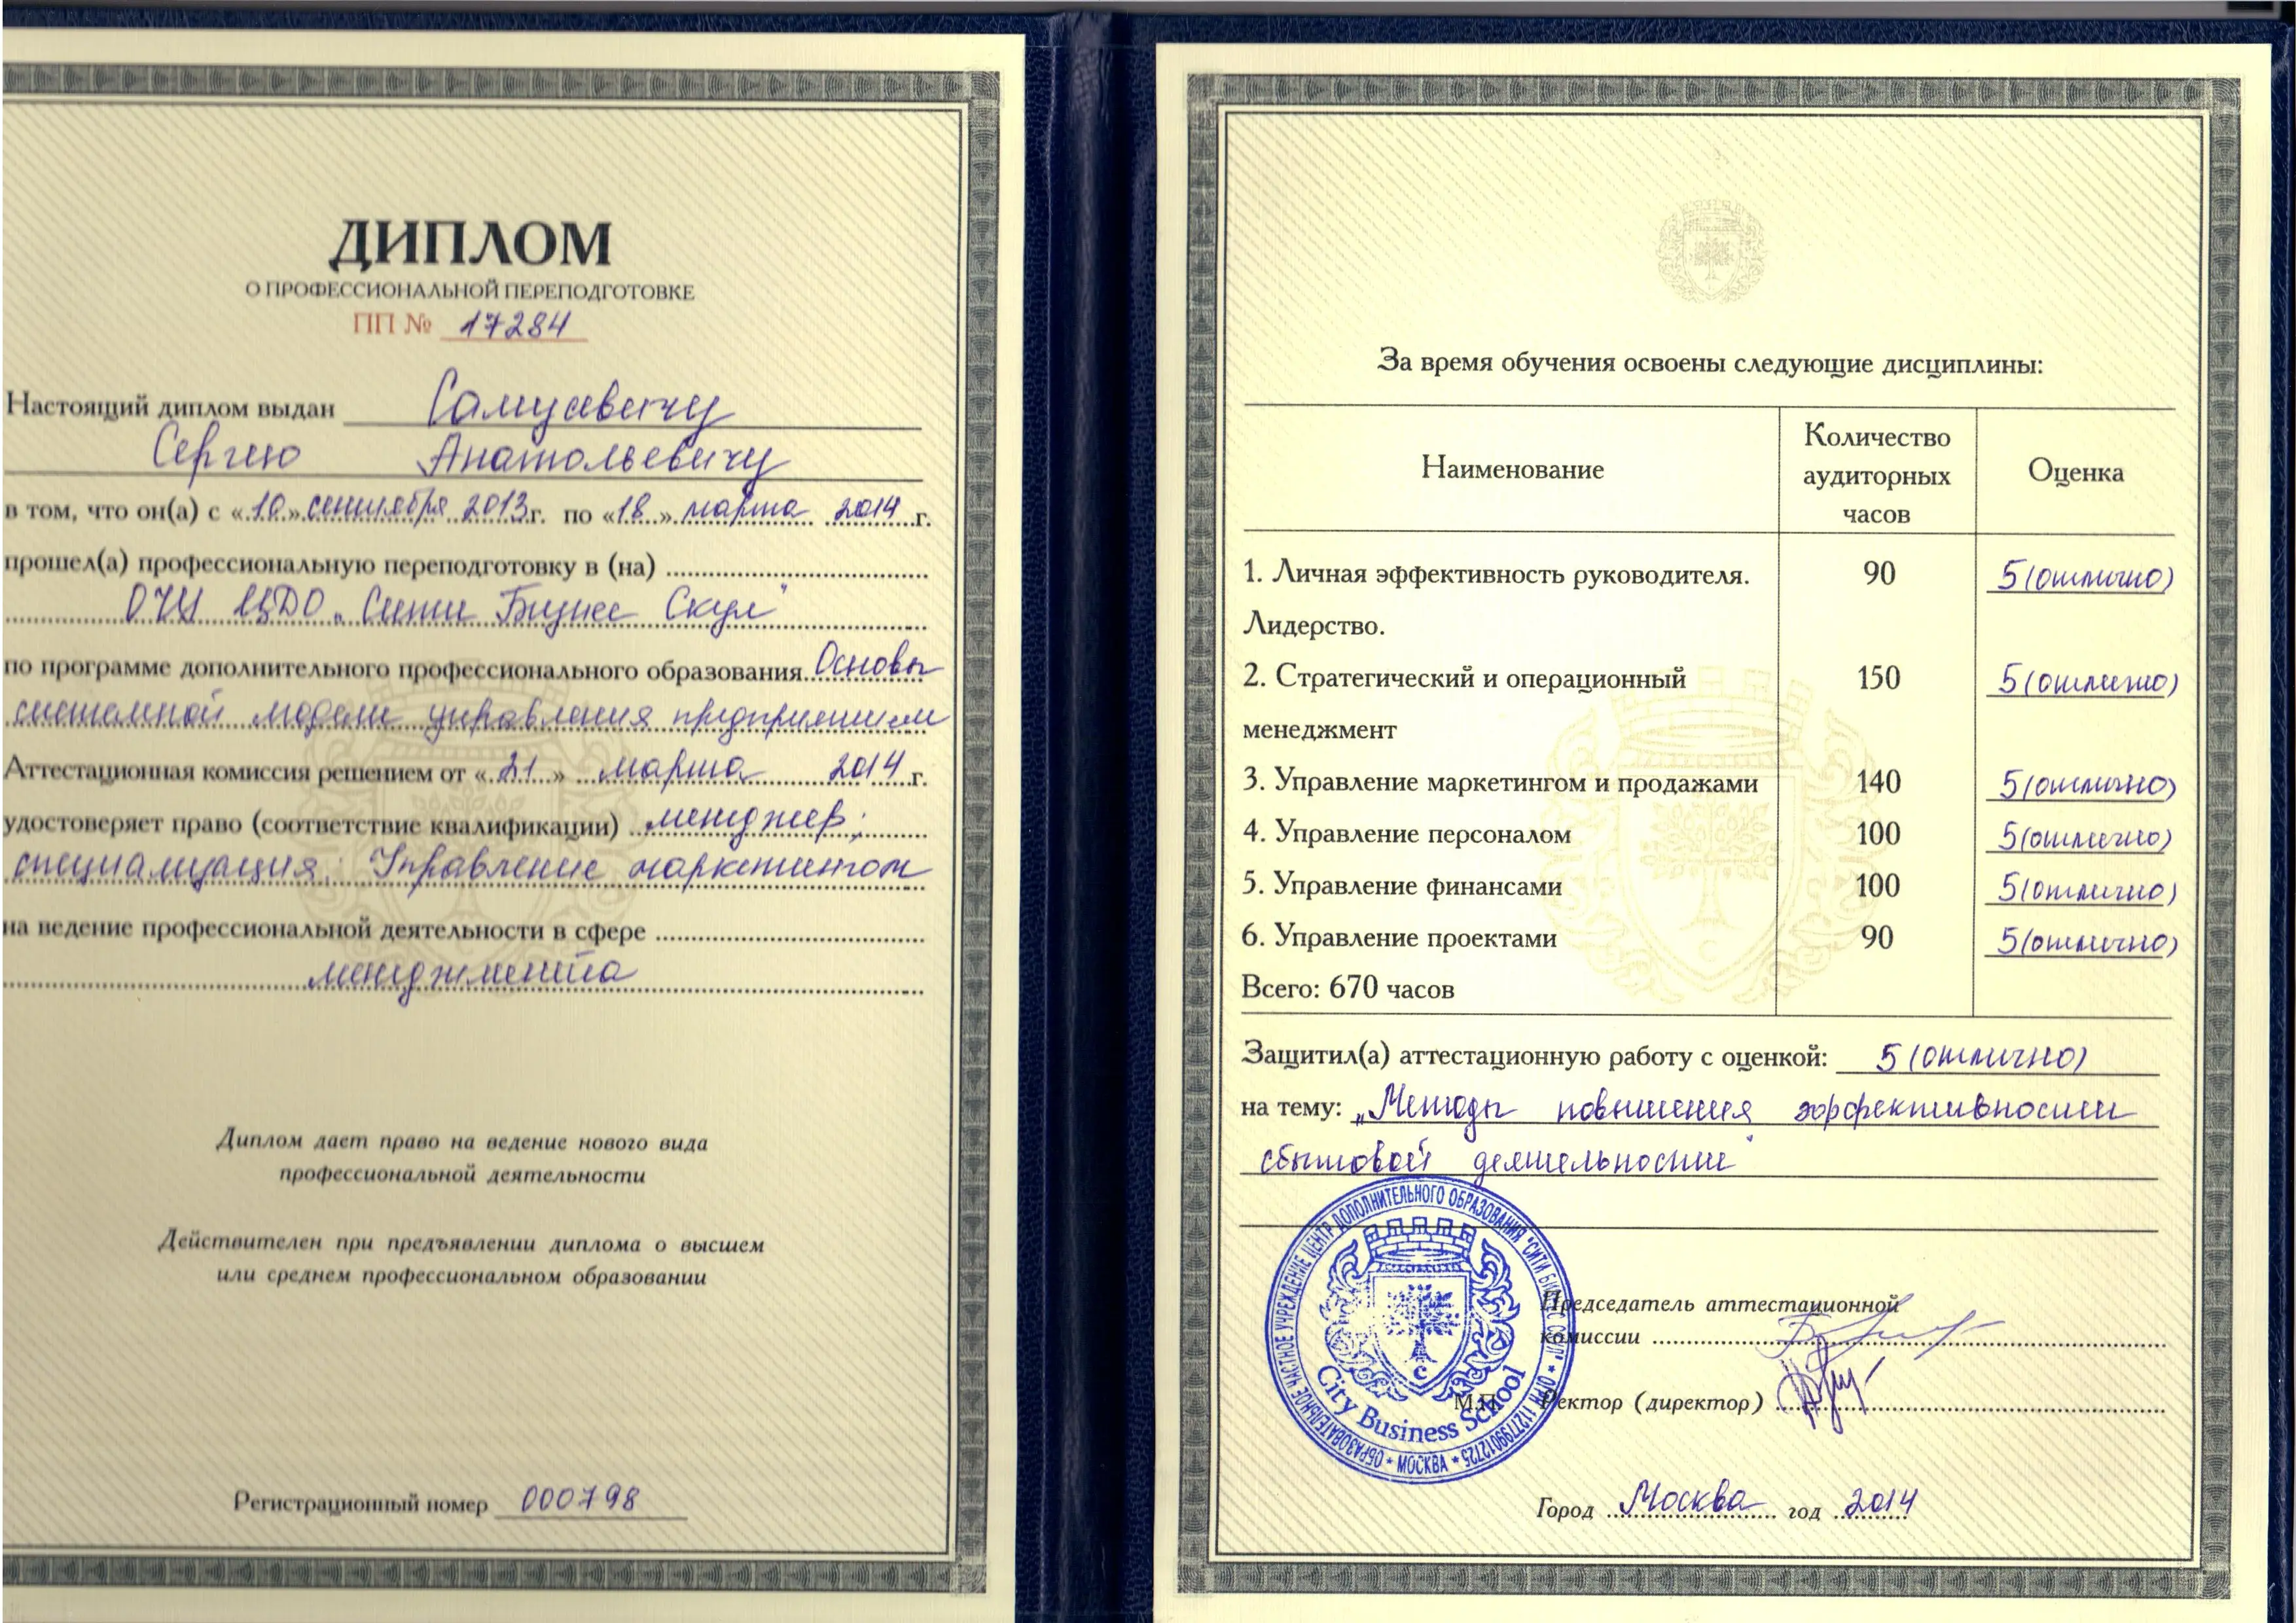 ДИПЛОМ
О ПРОФЕССИОНАЛЬНОЙ ПЕРЕПОДГОТОВКЕ
ПП № 17284
Настоящий диплом выдан Самусевичу
Сергею Анатольевичу
в том, что он(а) с «10» сентября 2013 г. по «18» марта 2014 г.
прошел(а) профессиональную переподготовку в (на)
ОЧУ ЦДО „Сити Бизнес Скул"
по программе дополнительного профессионального образования Основы
системной модели управления предприятием
Аттестационная комиссия решением от «21» марта 2014 г.
удостоверяет право (соответствие квалификации) менеджер;
специализация: Управление маркетингом
на ведение профессиональной деятельности в сфере
менеджмента
Диплом дает право на ведение нового вида
профессиональной деятельности
Действителен при предъявлении диплома о высшем
или среднем профессиональном образовании
Регистрационный номер 000798
За время обучения освоены следующие дисциплины:
Наименование
Количество
аудиторных
часов
Оценка
1. Личная эффективность руководителя. 90 5 (отлично)
Лидерство.
2. Стратегический и операционный 150 5 (отлично)
менеджмент
3. Управление маркетингом и продажами 140 5 (отлично)
4. Управление персоналом 100 5 (отлично)
5. Управление финансами 100 5 (отлично)
6. Управление проектами 90 5 (отлично)
Всего: 670 часов
Защитил(а) аттестационную работу с оценкой: 5 (отлично)
на тему: „Методы повышения эффективности
сбытовой деятельности"
ОБРАЗОВАТЕЛЬНОЕ ЧАСТНОЕ УЧРЕЖДЕНИЕ ЦЕНТР ДОПОЛНИТЕЛЬНОГО ОБРАЗОВАНИЯ "СИТИ БИЗНЕС СКУЛ" * ОГРН 1127799012725 * МОСКВА *
C
City Business School
Председатель аттестационной
комиссии
М.П.
Ректор (директор)
Город Москва год 2014